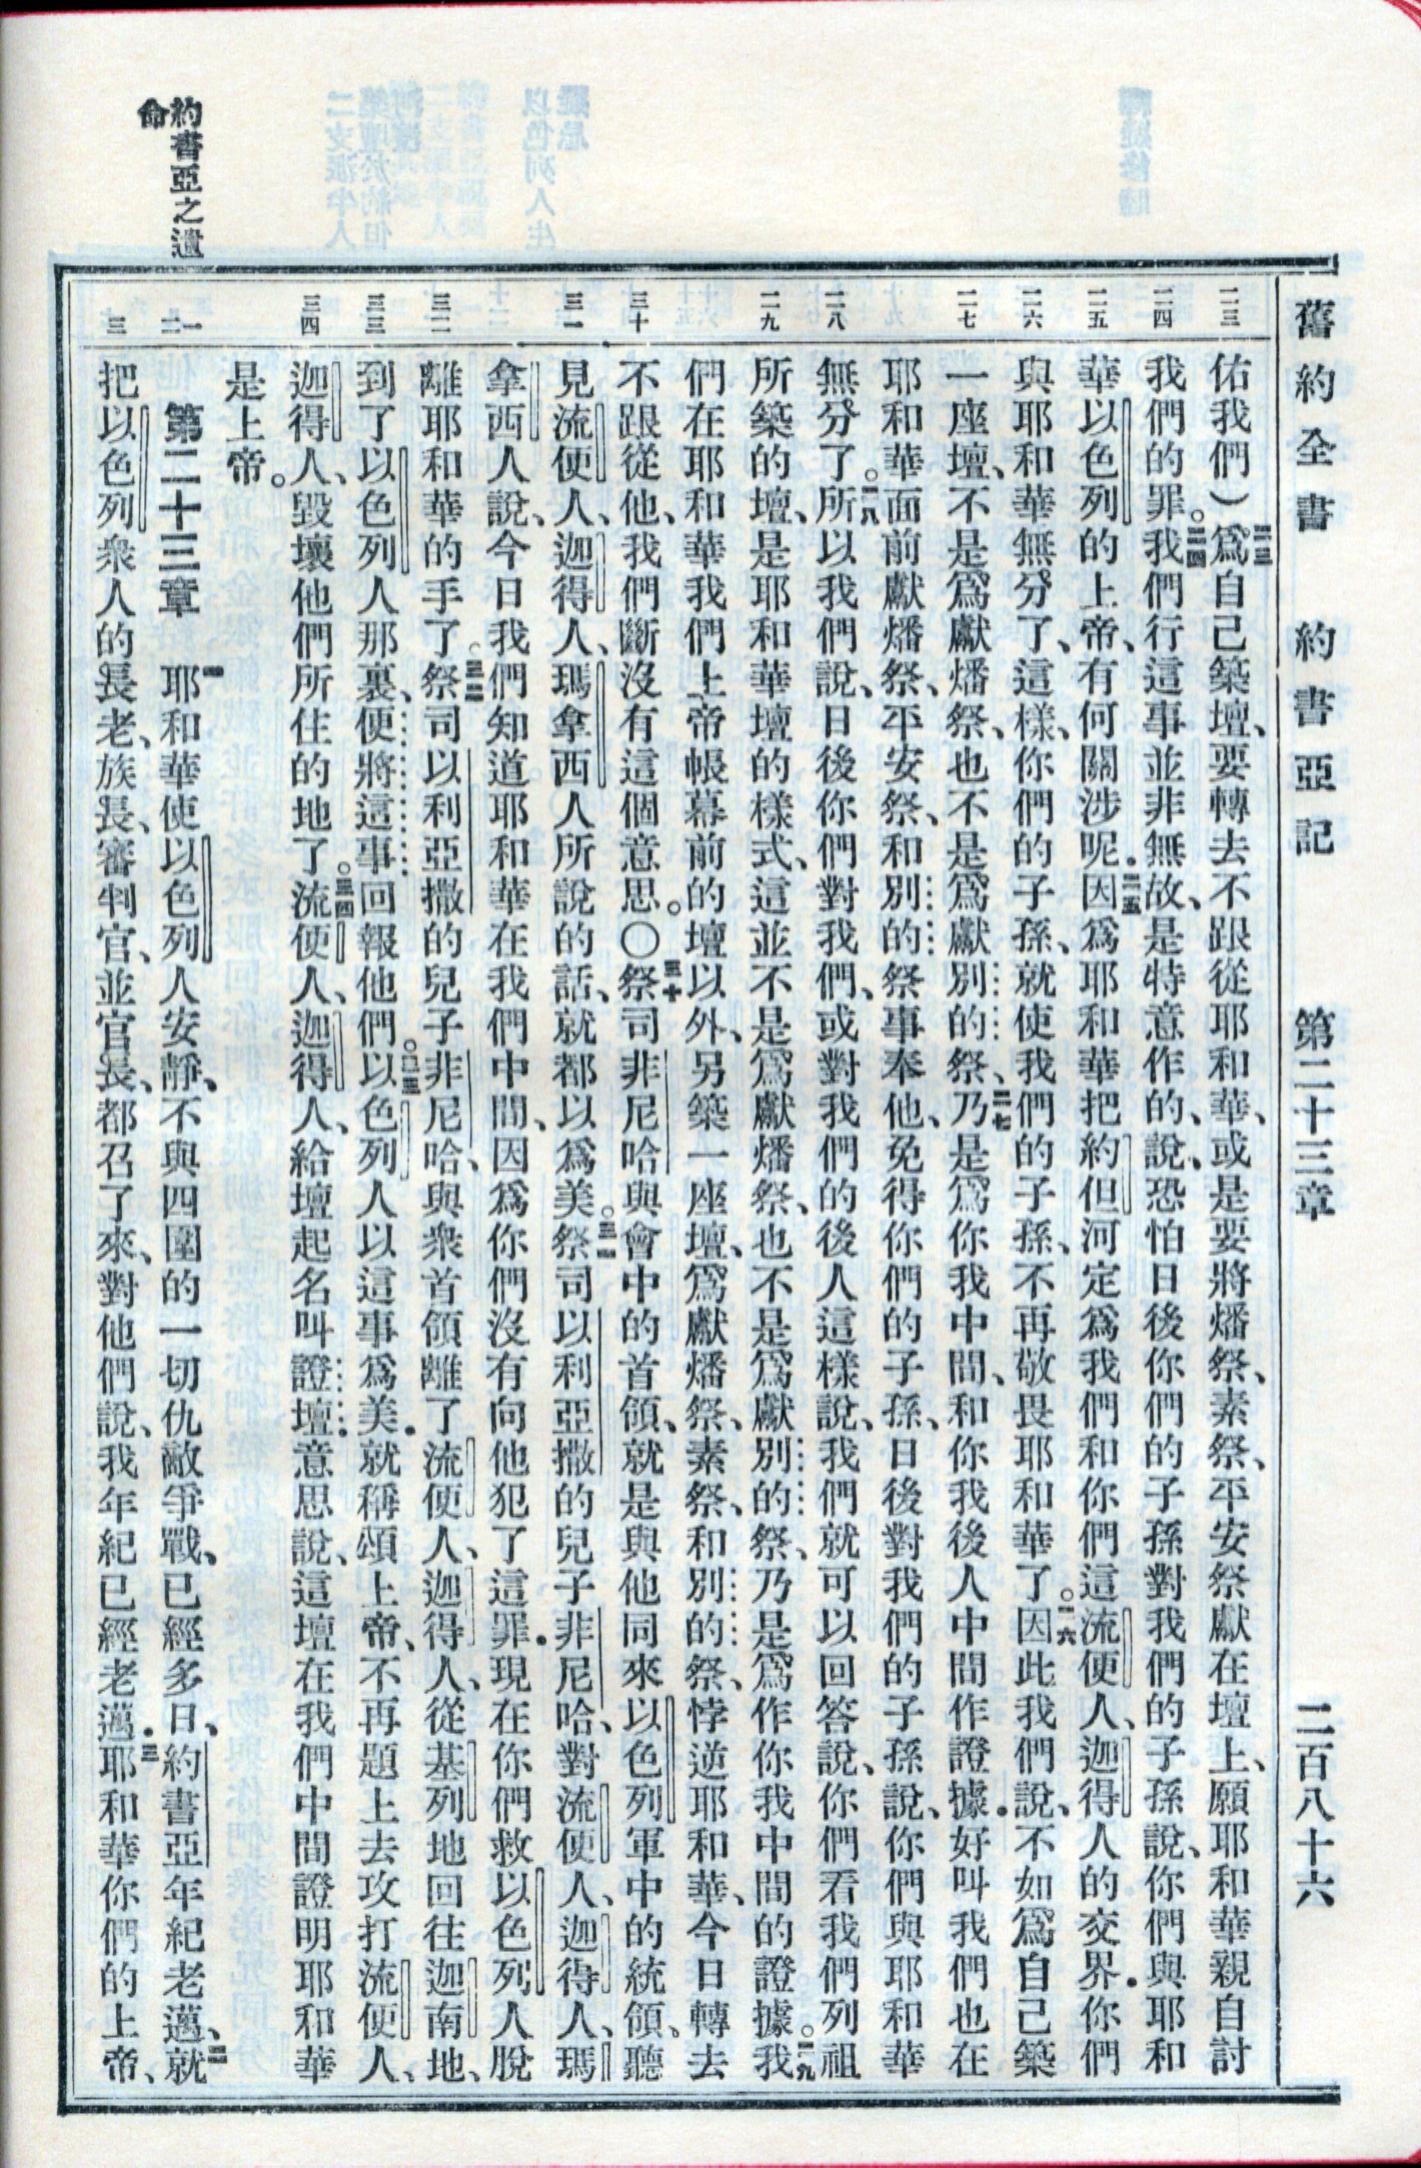 舊約全書　約書亞記　第二十三章　二百八十六
約書亞之遺
命
二三
二四
二五
二六
二七
二八
二九
三十
三一
三二
三三
三四
一
二
三
佑我們）二三爲自己築壇、要轉去不跟從耶和華、或是要將燔祭、素祭、平安祭獻在壇上、願耶和華親自討
我們的罪。二四我們行這事並非無故、是特意作的、說、恐怕日後你們的子孫對我們的子孫說、你們與耶和
華以色列的上帝、有何關涉呢．二五因爲耶和華把約但河定爲我們和你們這流便人、迦得人的交界．你們
與耶和華無分了、這樣、你們的子孫、就使我們的子孫、不再敬畏耶和華了。二六因此我們說、不如爲自己築
一座壇、不是爲獻燔祭、也不是爲獻別的祭、二七乃是爲你我中間、和你我後人中間作證據．好叫我們也在
耶和華面前獻燔祭、平安祭、和別的祭事奉他、免得你們的子孫、日後對我們的子孫說、你們與耶和華
無分了。二八所以我們說、日後你們對我們、或對我們的後人這樣說、我們就可以回答說、你們看我們列祖
所築的壇、是耶和華壇的樣式、這並不是爲獻燔祭、也不是爲獻別的祭、乃是爲作你我中間的證據。二九我
們在耶和華我們上帝帳幕前的壇以外、另築一座壇、爲獻燔祭、素祭、和別的祭、悖逆耶和華、今日轉去
不跟從他、我們斷沒有這個意思。〇三十祭司非尼哈與會中的首領、就是與他同來以色列軍中的統領、聽
見流便人、迦得人、瑪拿西人所說的話、就都以爲美。三一祭司以利亞撒的兒子非尼哈、對流便人、迦得人、瑪
拿西人說、今日我們知道耶和華在我們中間、因爲你們沒有向他犯了這罪．現在你們救以色列人脫
離耶和華的手了。三二祭司以利亞撒的兒子非尼哈、與衆首領離了流便人、迦得人、從基列地回往迦南地、
到了以色列人那裏、便將這事回報他們。三三以色列人以這事爲美．就稱頌上帝、不再題上去攻打流便人、
迦得人、毀壞他們所住的地了。三四流便人、迦得人、給壇起名叫證壇．意思說、這壇在我們中間證明耶和華
是上帝。
第二十三章　一耶和華使以色列人安靜、不與四圍的一切仇敵爭戰、已經多日、約書亞年紀老邁、二就
把以色列衆人的長老、族長、審判官、並官長、都召了來、對他們說、我年紀已經老邁．三耶和華你們的上帝、